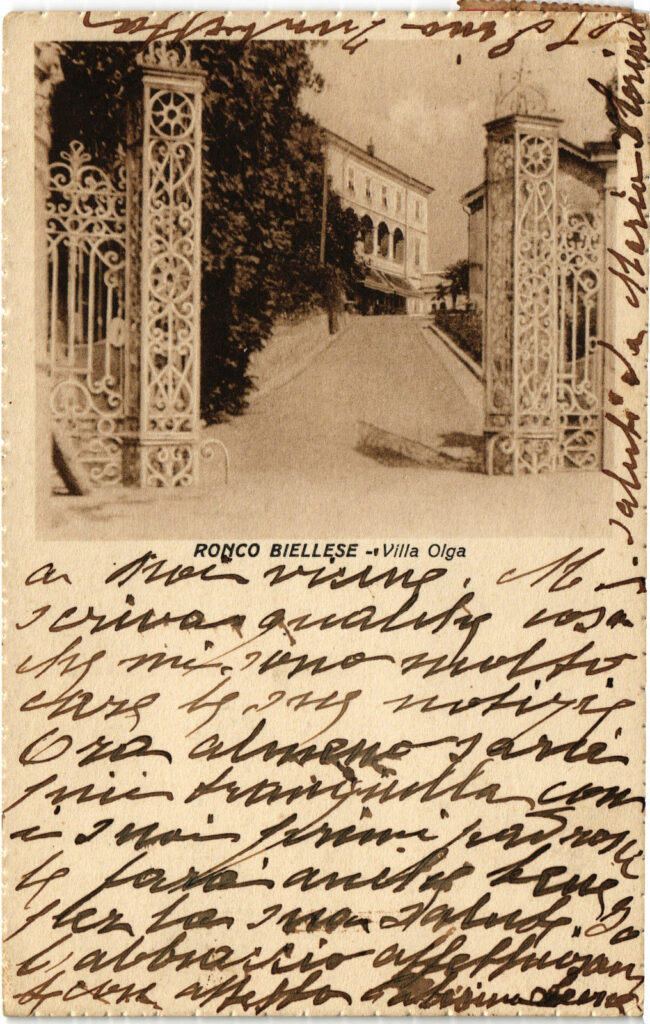 RONCO BIELLESE - Villa Olga
a noi vicine. Mi
scriva qualche cosa
che mi sono molto
care le sue notizie
Ora almeno sarà
più tranquilla con
i suoi primi padroni
le farà anche bene
per la sua salute. Io
l'abbraccio affettuosamen
te con affetto
saluti da Maria